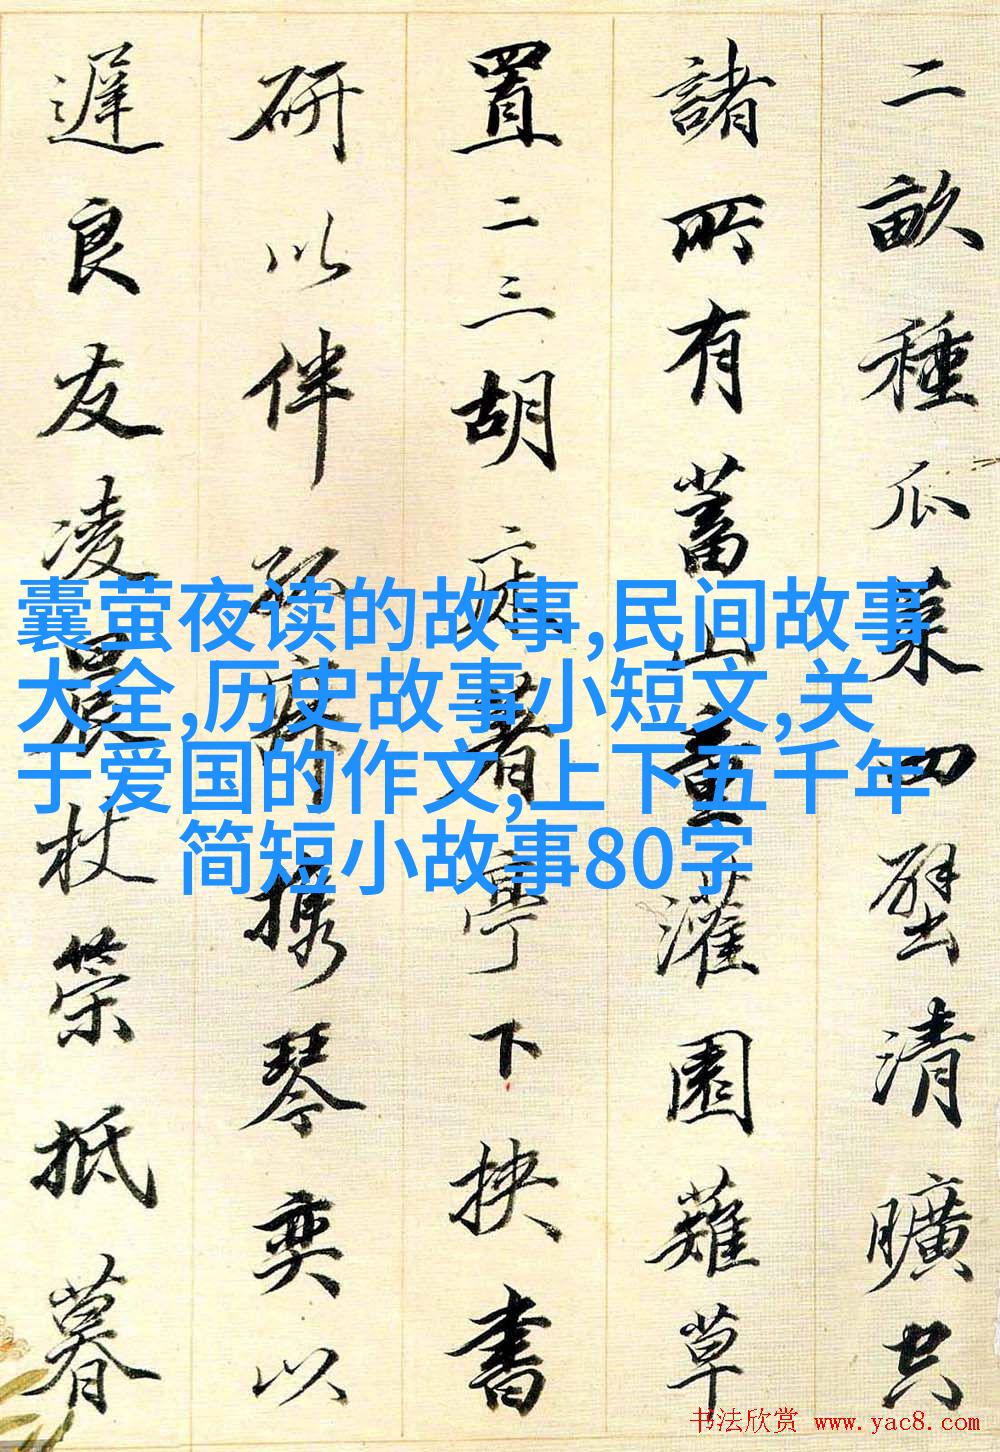 二畝種瓜菜四壁清曠空
諸所有蓄山童灌園薙草
置二三胡床著亭下挾書
研以伴孤寂携琴奕以
遲良友凌晨杖策抵暮
囊萤夜读的故事,民间故事
大全,历史故事小短文,关
于爱国的作文,上下五千年
简短小故事80字
书法欣赏 www.yac8.com